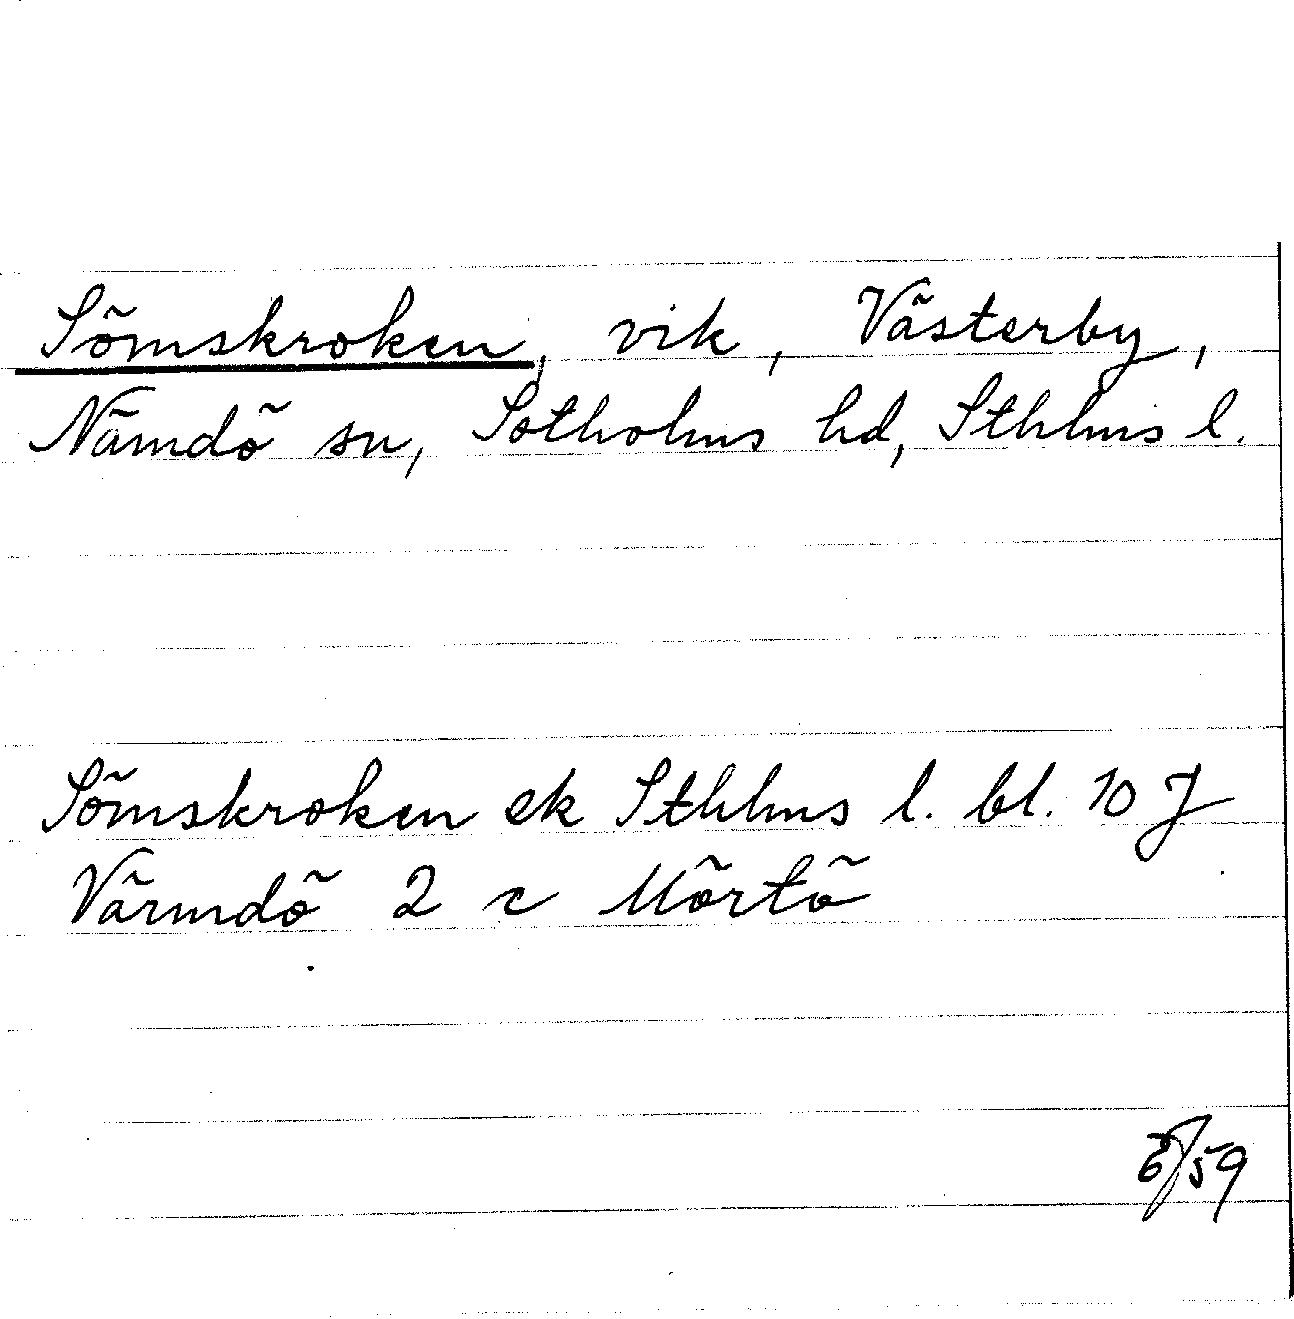 Sömskroken, vik, Västerby,
Nämdö sn, Sotholms hd, Sthlms l.
Sömskroken ek Sthlms l. bl. 10 J
Värmdö 2 c Mörtö